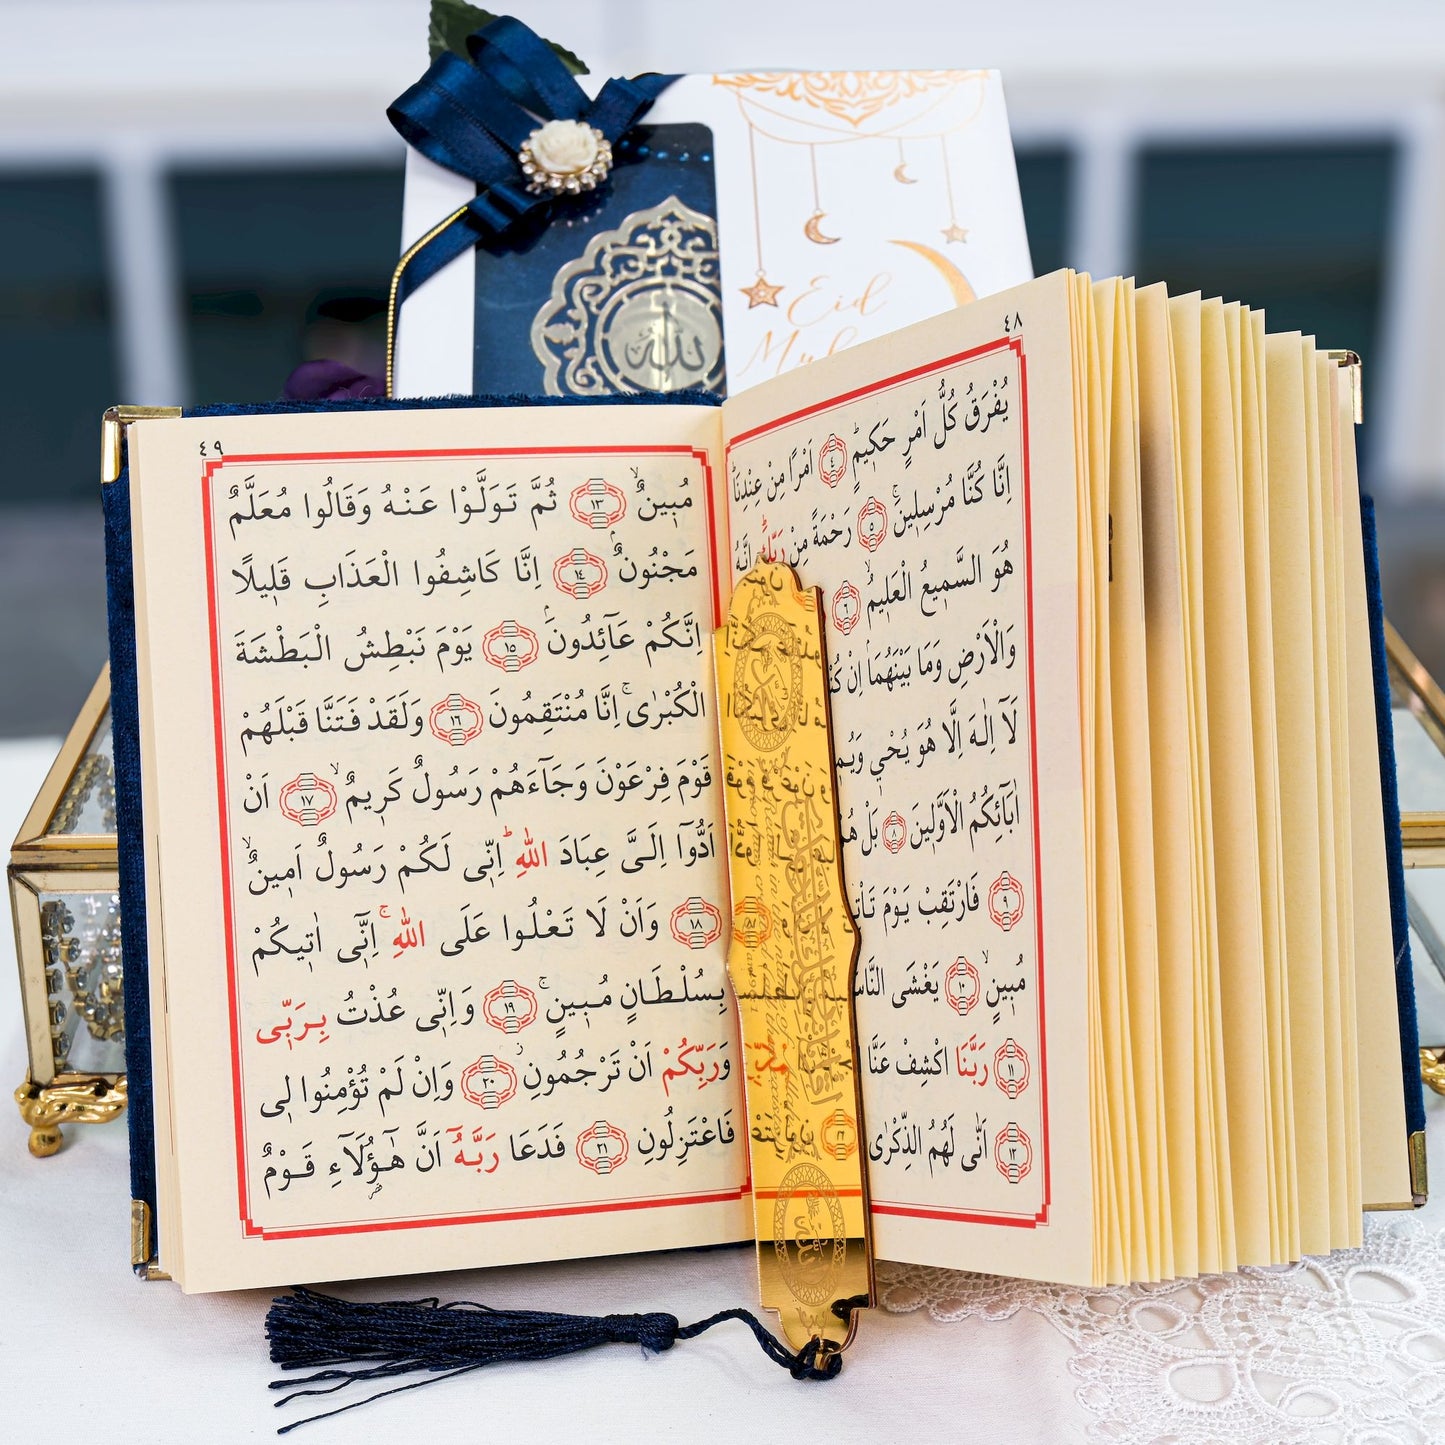 ٤٨
يُفْرَقُ كُلُّ اَمْرٍ حَكٖيمٍۙ ﴿٤﴾ اَمْرًا مِنْ عِنْدِنَاۜ
اِنَّا كُنَّا مُرْسِلٖينَۚ ﴿٥﴾ رَحْمَةً مِنْ رَبِّكَۜ اِنَّهُ
هُوَ السَّمٖيعُ الْعَلٖيمُۙ ﴿٦﴾
وَالْاَرْضِ وَمَا بَيْنَهُمَا اِنْ
لَٓا اِلٰهَ اِلَّا هُوَ يُحْيٖ
اٰبَٓائِكُمُ الْاَوَّلٖينَ ﴿٨﴾ بَلْ
﴿٩﴾ فَارْتَقِبْ يَوْمَ
مُبٖينٍۙ ﴿١٠﴾ يَغْشَى
﴿١١﴾ رَبَّنَا اكْشِفْ عَنَّا
﴿١٢﴾ اَنّٰى لَهُمُ الذِّكْرٰى
٤٩
مُبٖينٌۙ ﴿١٣﴾ ثُمَّ تَوَلَّوْا عَنْهُ وَقَالُوا مُعَلَّمٌ
مَجْنُونٌۢ ﴿١٤﴾ اِنَّا كَاشِفُوا الْعَذَابِ قَلٖيلًا
اِنَّكُمْ عَٓائِدُونَۢ ﴿١٥﴾ يَوْمَ نَبْطِشُ الْبَطْشَةَ
الْكُبْرٰىۚ اِنَّا مُنْتَقِمُونَ ﴿١٦﴾ وَلَقَدْ فَتَنَّا قَبْلَهُمْ
قَوْمَ فِرْعَوْنَ وَجَٓاءَهُمْ رَسُولٌ كَرٖيمٌۙ ﴿١٧﴾ اَنْ
اَدُّٓوا اِلَيَّ عِبَادَ اللّٰهِۜ اِنّٖي لَكُمْ رَسُولٌ اَمٖينٌۙ
﴿١٨﴾ وَاَنْ لَا تَعْلُوا عَلَى اللّٰهِۚ اِنّٖٓي اٰتٖيكُمْ
بِسُلْطَانٍ مُبٖينٍۚ ﴿١٩﴾ وَاِنّٖي عُذْتُ بِرَبّٖي
وَرَبِّكُمْ اَنْ تَرْجُمُونِۘ ﴿٢٠﴾ وَاِنْ لَمْ تُؤْمِنُوا لٖي
فَاعْتَزِلُونِ ﴿٢١﴾ فَدَعَا رَبَّهُٓ اَنَّ هٰٓؤُلَٓاءِ قَوْمٌ
الله
Eid